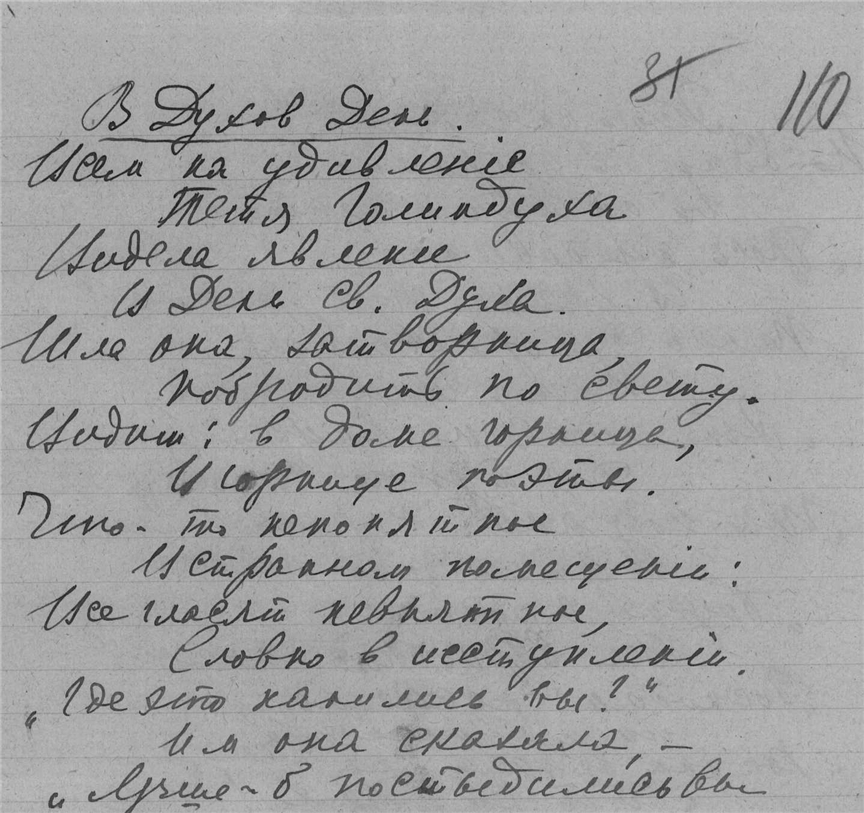 31
110
В Духов День.
Всем на удивленіе
Тетя Голиндуха
Видела явленье
В День св. Духа.
Шла она, затворница,
Побродить по свету.
Видит: в доме горница,
В горнице поэты.
Что-то непонятное
В странном помещеніи:
Все гласят невнятное,
Словно в исступленіи.
„Где это напились вы?“
Им она сказала, –
„Лучше-б постыдились вы